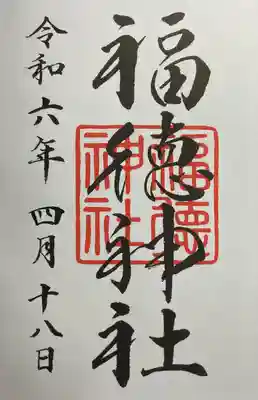 福徳神社
福徳神社
令和六年 四月十八日